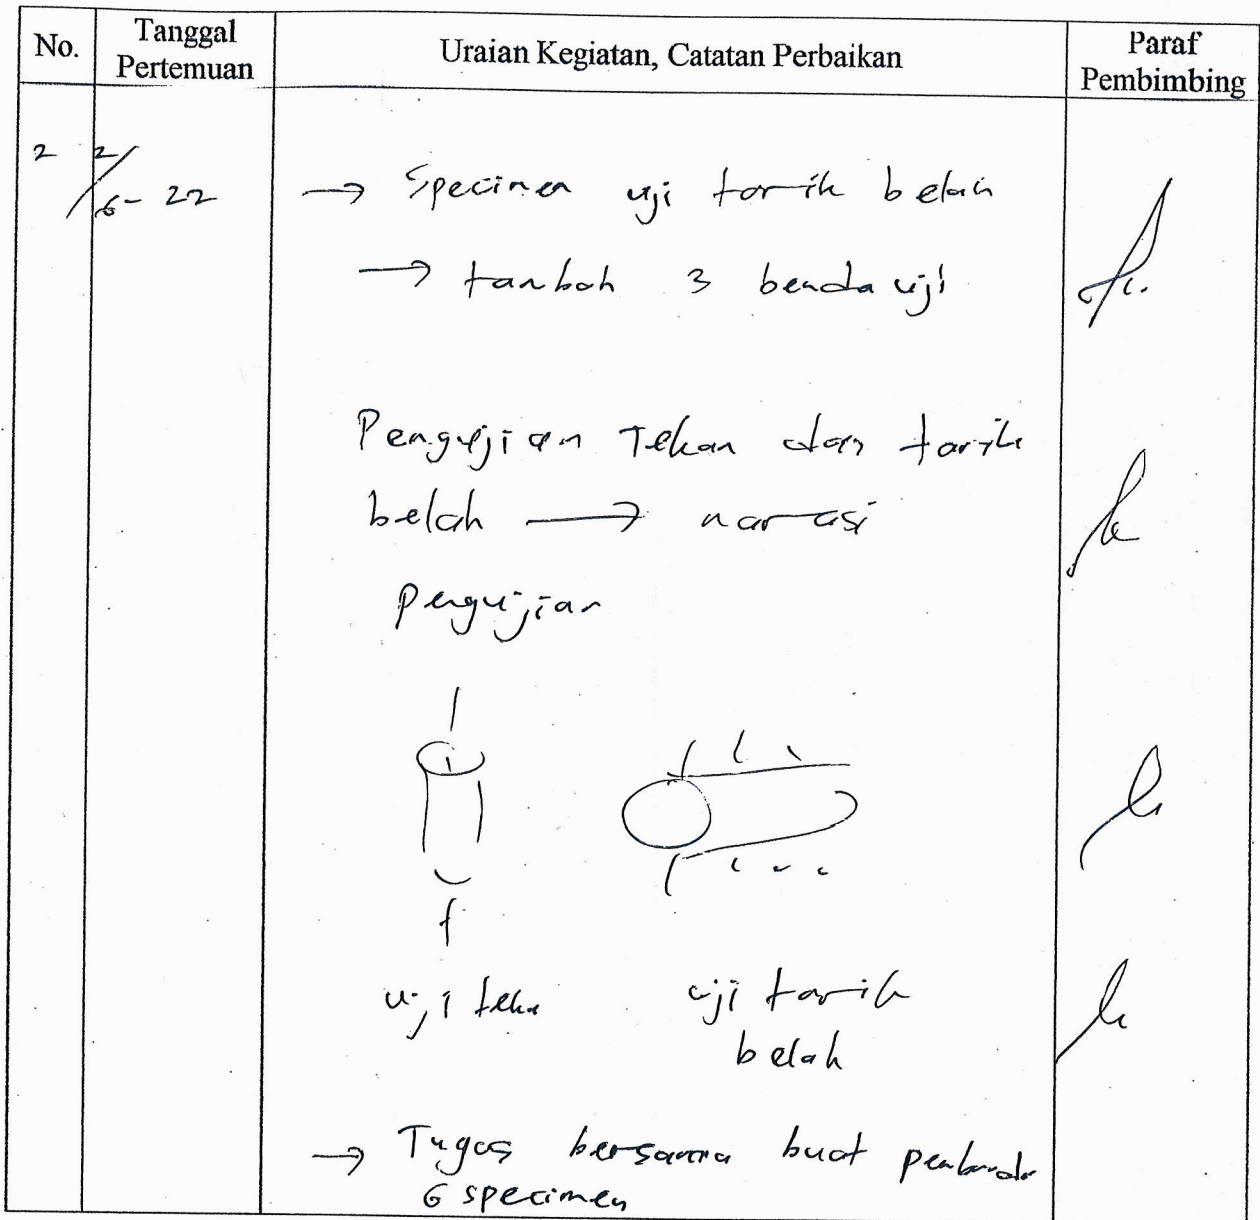 No.
Tanggal
Pertemuan
Uraian Kegiatan, Catatan Perbaikan
Paraf
Pembimbing
2 2/6-22
→ Specimen uji tarik belah
→ tambah 3 benda uji
Pengujian Tekan dan tarik
belah → narasi
pengujian
uji tekan
uji tarik
belah
→ Tugas bersama buat
6 specimen